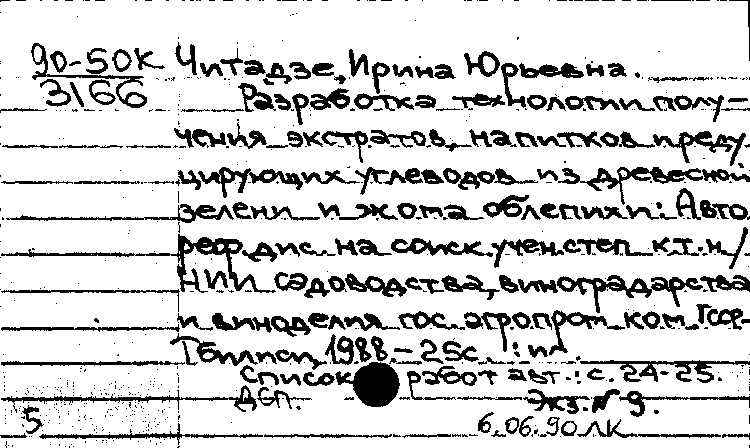 90-50К
3166
Читадзе, Ирина Юрьевна.
Разработка технологии полу-
чения экстратов, напитков и реду
цирующих углеводов из древесной
зелени и жома облепихи: Авто
реф. дис. на соиск. учен. степ к.т.н/
НИИ садоводства, виноградарства
и виноделия гос. агропром ком. ГССР-
Тбилиси, 1988.-25с. :ил.
Список работ авт.: с. 24-25.
ДСП.
Экз. N 9.
5
6.06.90 ЛК